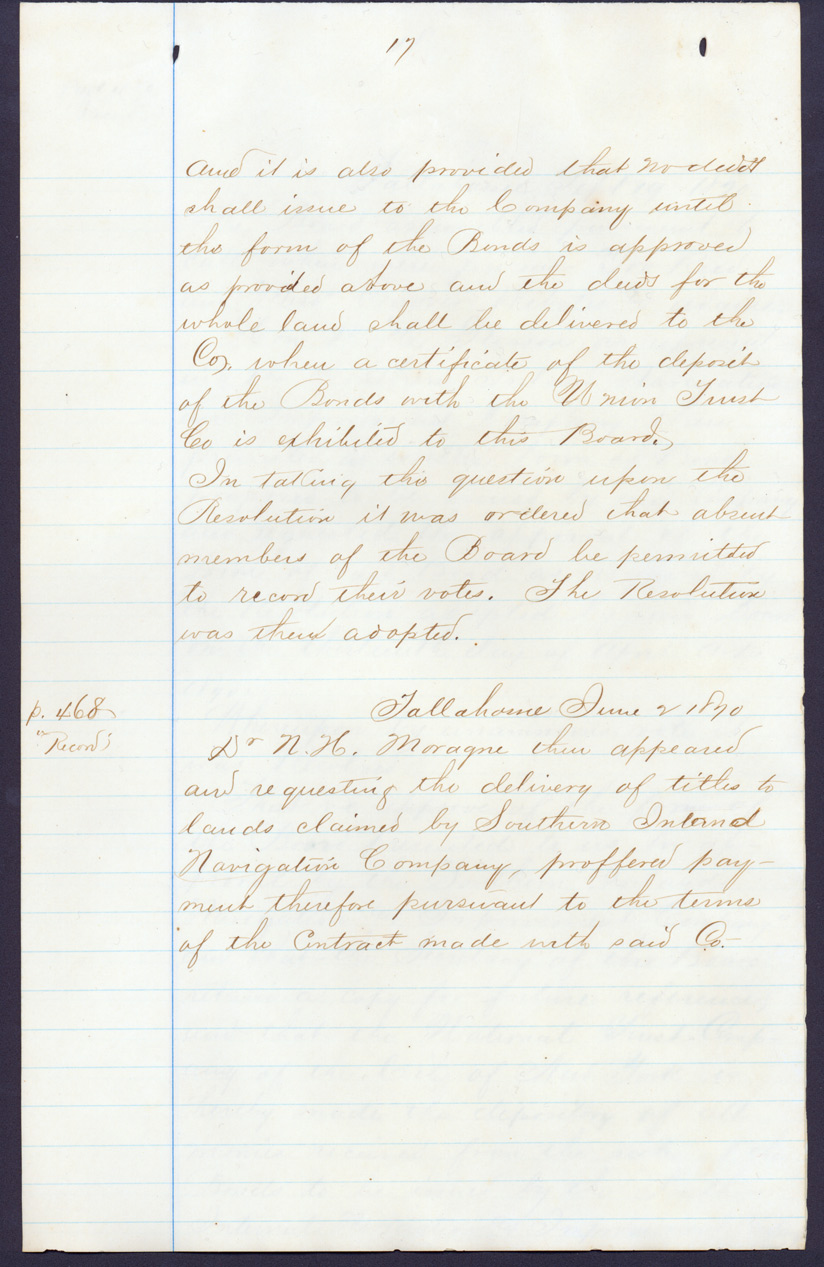 17
and it is also provided that no deed
shall issue to the Company until
the form of the Bonds is approved
as provided above and the deeds for the
whole land shall be delivered to the
Co. when a certificate of the deposit
of the Bonds with the Union Trust
Co is exhibited to this Board.
In taking the question upon the
Resolution it was ordered that absent
members of the Board be permitted
to record their votes. The Resolution
was then adopted.
p. 468
"Record"
Tallahassee June 2 1870
Dr N. H. Moragne then appeared
and requesting the delivery of titles to
lands claimed by Southern Inland
Navigation Company, proffered pay-
ment therefore pursuant to the terms
of the Contract made with said Co.